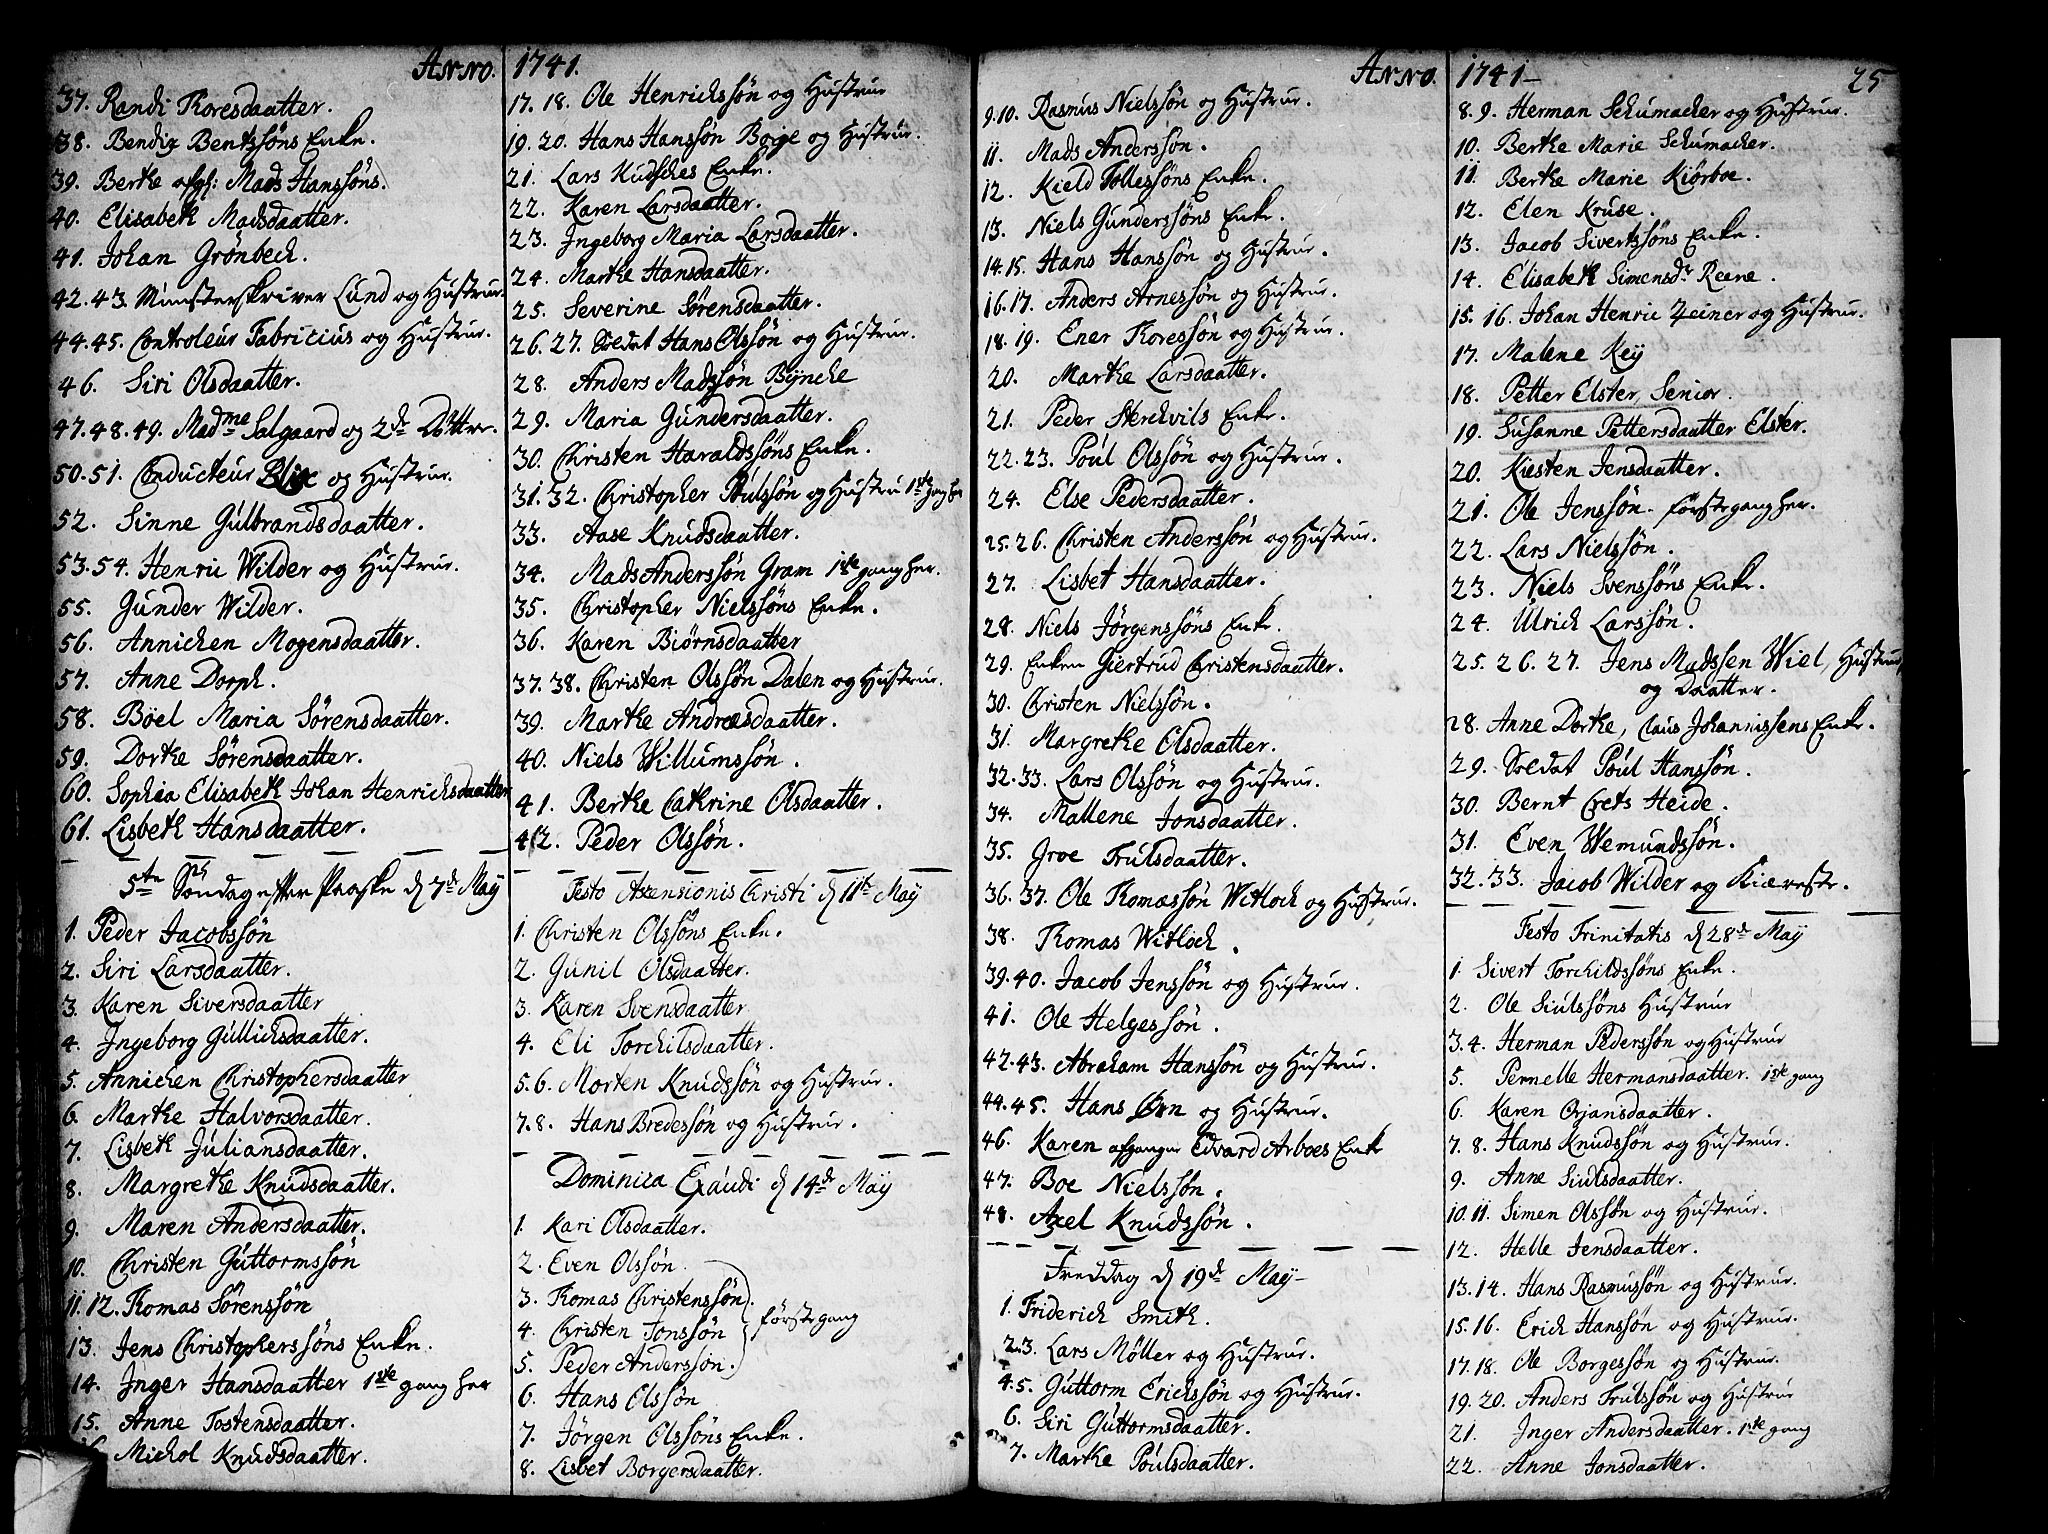 Anno. 1741.
37. Randi Thoresdaatter.
38. Bendix Bentssöns Enke.
39. Berthe afg: Mads Hanssöns.
40. Elisabeth Madsdaatter.
41. Johan Grönbech.
42. 43. Münsterskriver Lund og Hustrue.
44. 45. Controleur Fabricius og Hustrue.
46. Siri Olsdaatter.
47. 48. 49. Madme Salgaard og 2de Döttre.
50. 51. Conducteur Blix og Hustrue.
52. Sinne Gulbrandsdaatter.
53. 54. Henric Wilder og Hustrue.
55. Gunder Wilder.
56. Annichen Mogensdaatter.
57. Anne Dorph.
58. Böel Maria Sörensdaatter.
59. Dorthe Sörensdaatter.
60. Sophia Elisabeth Johan Henrichsdaatter
61. Lisbeth Hansdaatter.
5te Söndag efter Paaske d 7de Maÿ
1. Peder Jacobssön
2. Siri Larsdaatter.
3. Karen Siversdaatter
4. Jngeborg Gullichsdaatter.
5. Annichen Christophersdaatter
6. Marthe Halvorsdaatter.
7. Lisbeth Juliansdaatter.
8. Margrethe Knudsdaatter.
9. Maren Andersdaatter.
10. Christen Guttormssön
11. 12. Thomas Sörenssön
13. Jens Christopherssöns Enke.
14. Jnger Hansdaatter 1ste gang her
15. Anne Tostensdaatter.
Michol Knudsdaatter.
17. 18. Ole Henrichssön og Hustrue
19. 20. Hans Hanssön Boige og Hustrue.
21. Lars Kudsches Enke.
22. Karen Larsdaatter.
23. Jngeborg Maria Larsdaatter.
24. Marthe Hansdaatter.
25. Severine Sörensdaatter.
26. 27. Soldat Hans Olssön og Hustrue.
28. Anders Madssön Bÿnche
29. Maria Gundersdaatter.
30. Christen Haraldssöns Enke.
31. 32. Christopher Poulssön og Hustrue 1ste gang her
33. Aase Knudsdaatter.
34. Mads Anderssön Gram 1ste gang her.
35. Christopher Nielssöns Enke.
36. Karen Biörnsdaatter
37. 38. Christen Olssön Dalen og Hustrue.
39. Marthe Andræsdaatter.
40. Niels Willumssön.
41. Berthe Cathrine Olsdaatter.
42. Peder Olssön.
Festo Ascensionis Christi d 11te Maÿ
1. Christen Olssöns Enke.
2. Gunil Olsdaatter.
3. Karen Svensdaatter
4. Eli Torchilsdaatter.
5. 6. Morten Knudssön og Hustrue.
7. 8. Hans Bredessön og Hustrue.
Dominica Exaudi d 14de Maÿ
1. Kari Olsdaatter.
2. Even Olssön
3. Thomas Christenssön.
4. Christen Jonssön förste gang
5. Peder Anderssön.
6. Hans Olssön
7. Jörgen Olssöns Enke.
8. Lisbet Borgersdaatter.
Anno. 1741 25
9. 10. Rasmus Nielssön og Hustrue.
11. Mads Anderssön.
12. Kield Tollessöns Enke.
13. Niels Gunderssöns Enke.
14. 15. Hans Hanssön og Hustrue.
16. 17. Anders Arnessön og Hustrue.
18. 19. Ener Thoressön og Hustrue.
20. Marthe Larsdaatter.
21. Peder Sterchvils Enke.
22. 23. Poul Olssön og Hustrue.
24. Else Pedersdaatter.
25. 26. Christen Anderssön og Hustrue.
27. Lisbet Hansdaatter.
28. Niels Jörgenssöns Enke.
29. Enken Giertrud Christensdaatter.
30. Christen Nielssön.
31. Margrethe Olsdaatter.
32. 33. Lars Olssön og Hustrue.
34. Mallene Jonsdaatter.
35. Jroe Trulsdaatter.
36. 37. Ole Thomæssön Witloch og Hustrue.
38. Thomas Witloch.
39. 40. Jacob Jenssön og Hustrue.
41. Ole Helgessön.
42. 43. Abraham Hanssön og Hustrue.
44. 45. Hans Örn og Hustrue.
46. Karen afgangne Edvard Arboes Enke
47. Boe Nielssön.
48. Axel Knudssön.
Freddag d 19de Maÿ
1. Friderich Smith.
2. 3. Lars Möller og Hustrue.
4. 5. Guttorm Erichssön og Hustrue.
6. Siri Guttormsdaatter.
7. Marthe Poulsdaatter.
8. 9. Herman Schumacher og Hustrue.
10. Berthe Marie Schumacher.
11. Berthe Marie Kiörboe.
12. Elen Kruse.
13. Jacob Sivertssöns Enke.
14. Elisabeth Simensdr Reene.
15. 16. Johan Henric Zeiner og Hustrue.
17. Malene Keÿ
18. Petter Elster, Senior.
19. Susanne Pettersdaatter Elster.
20. Kiesten Jensdaatter.
21. Ole Jenssön förste gang her.
22. Lars Nielssön.
23. Niels Svenssöns Enke.
24. Ulrich Larssön.
25. 26. 27. Jens Madssen Wiel, Hustrue
og Daatter.
28. Anne Dorthe, Claus Johannissens Enke.
29. Soldat Poul Hanssön.
30. Bernt Crets Heide.
31. Even Wemundssön.
32. 33. Jacob Wilder og Kiæreste.
Festo Trinitatis d 28de Maÿ
1. Sivert Torchildssöns Enke.
2. Ole Siulssöns Hustrue
3. 4. Herman Pederssön og Hustrue
5. Pernelle Hermansdaatter. 1ste gang
6. Karen Orjansdaatter.
7. 8. Hans Knudssön og Hustrue.
9. Anne Siulsdaatter.
10. 11. Simen Olssön og Hustrue.
12. Helle Jensdaatter.
13. 14. Hans Rasmussön og Hustrue.
15. 16. Erich Hanssön og Hustrue.
17. 18. Ole Borgessön og Hustrue.
19. 20. Anders Trulssön og Hustrue
21. Jnger Andersdaatter. 1ste gang
22. Anne Jonsdaatter.